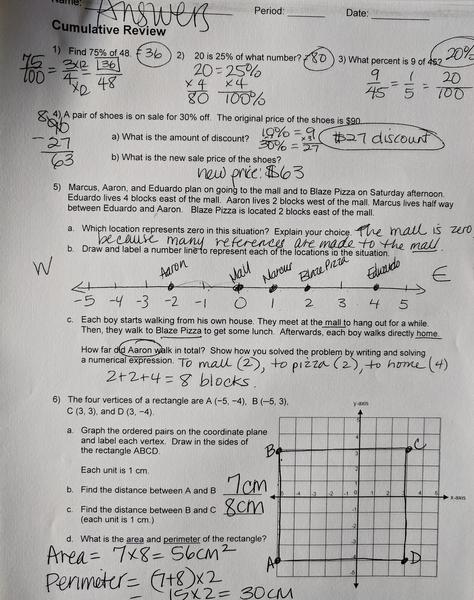 Name: Answers Period: Date:
Cumulative Review
1) Find 75% of 48. 36 2) 20 is 25% of what number? 80 3) What percent is 9 of 45? 20%
75/100 = 3×12/4×12 = 36/48
20 = 25%
×4 ×4
80 100%
9/45 = 1/5 = 20/100
4) A pair of shoes is on sale for 30% off. The original price of the shoes is $90.
90
- 27
63
a) What is the amount of discount? 10% = 9
×3
30% = 27
$27 discount
b) What is the new sale price of the shoes?
new price: $63
5) Marcus, Aaron, and Eduardo plan on going to the mall and to Blaze Pizza on Saturday afternoon.
Eduardo lives 4 blocks east of the mall. Aaron lives 2 blocks west of the mall. Marcus lives half way
between Eduardo and Aaron. Blaze Pizza is located 2 blocks east of the mall.
a. Which location represents zero in this situation? Explain your choice. The mall is zero
because many references are made to the mall.
b. Draw and label a number line to represent each of the locations in the situation.
W Aaron Mall Marcus Blaze Pizza Eduardo E
-5 -4 -3 -2 -1 0 1 2 3 4 5
c. Each boy starts walking from his own house. They meet at the mall to hang out for a while.
Then, they walk to Blaze Pizza to get some lunch. Afterwards, each boy walks directly home.
How far did Aaron walk in total? Show how you solved the problem by writing and solving
a numerical expression. To mall (2), to pizza (2), to home (4)
2+2+4 = 8 blocks.
6) The four vertices of a rectangle are A (-5, -4), B (-5, 3),
C (3, 3), and D (3, -4).
a. Graph the ordered pairs on the coordinate plane
and label each vertex. Draw in the sides of
the rectangle ABCD.
Each unit is 1 cm.
b. Find the distance between A and B 7cm
c. Find the distance between B and C 8cm
(each unit is 1 cm.)
d. What is the area and perimeter of the rectangle?
Area = 7×8 = 56cm²
Perimeter = (7+8)×2
= 15×2 = 30cm
y-axis
B C
x-axis
A D